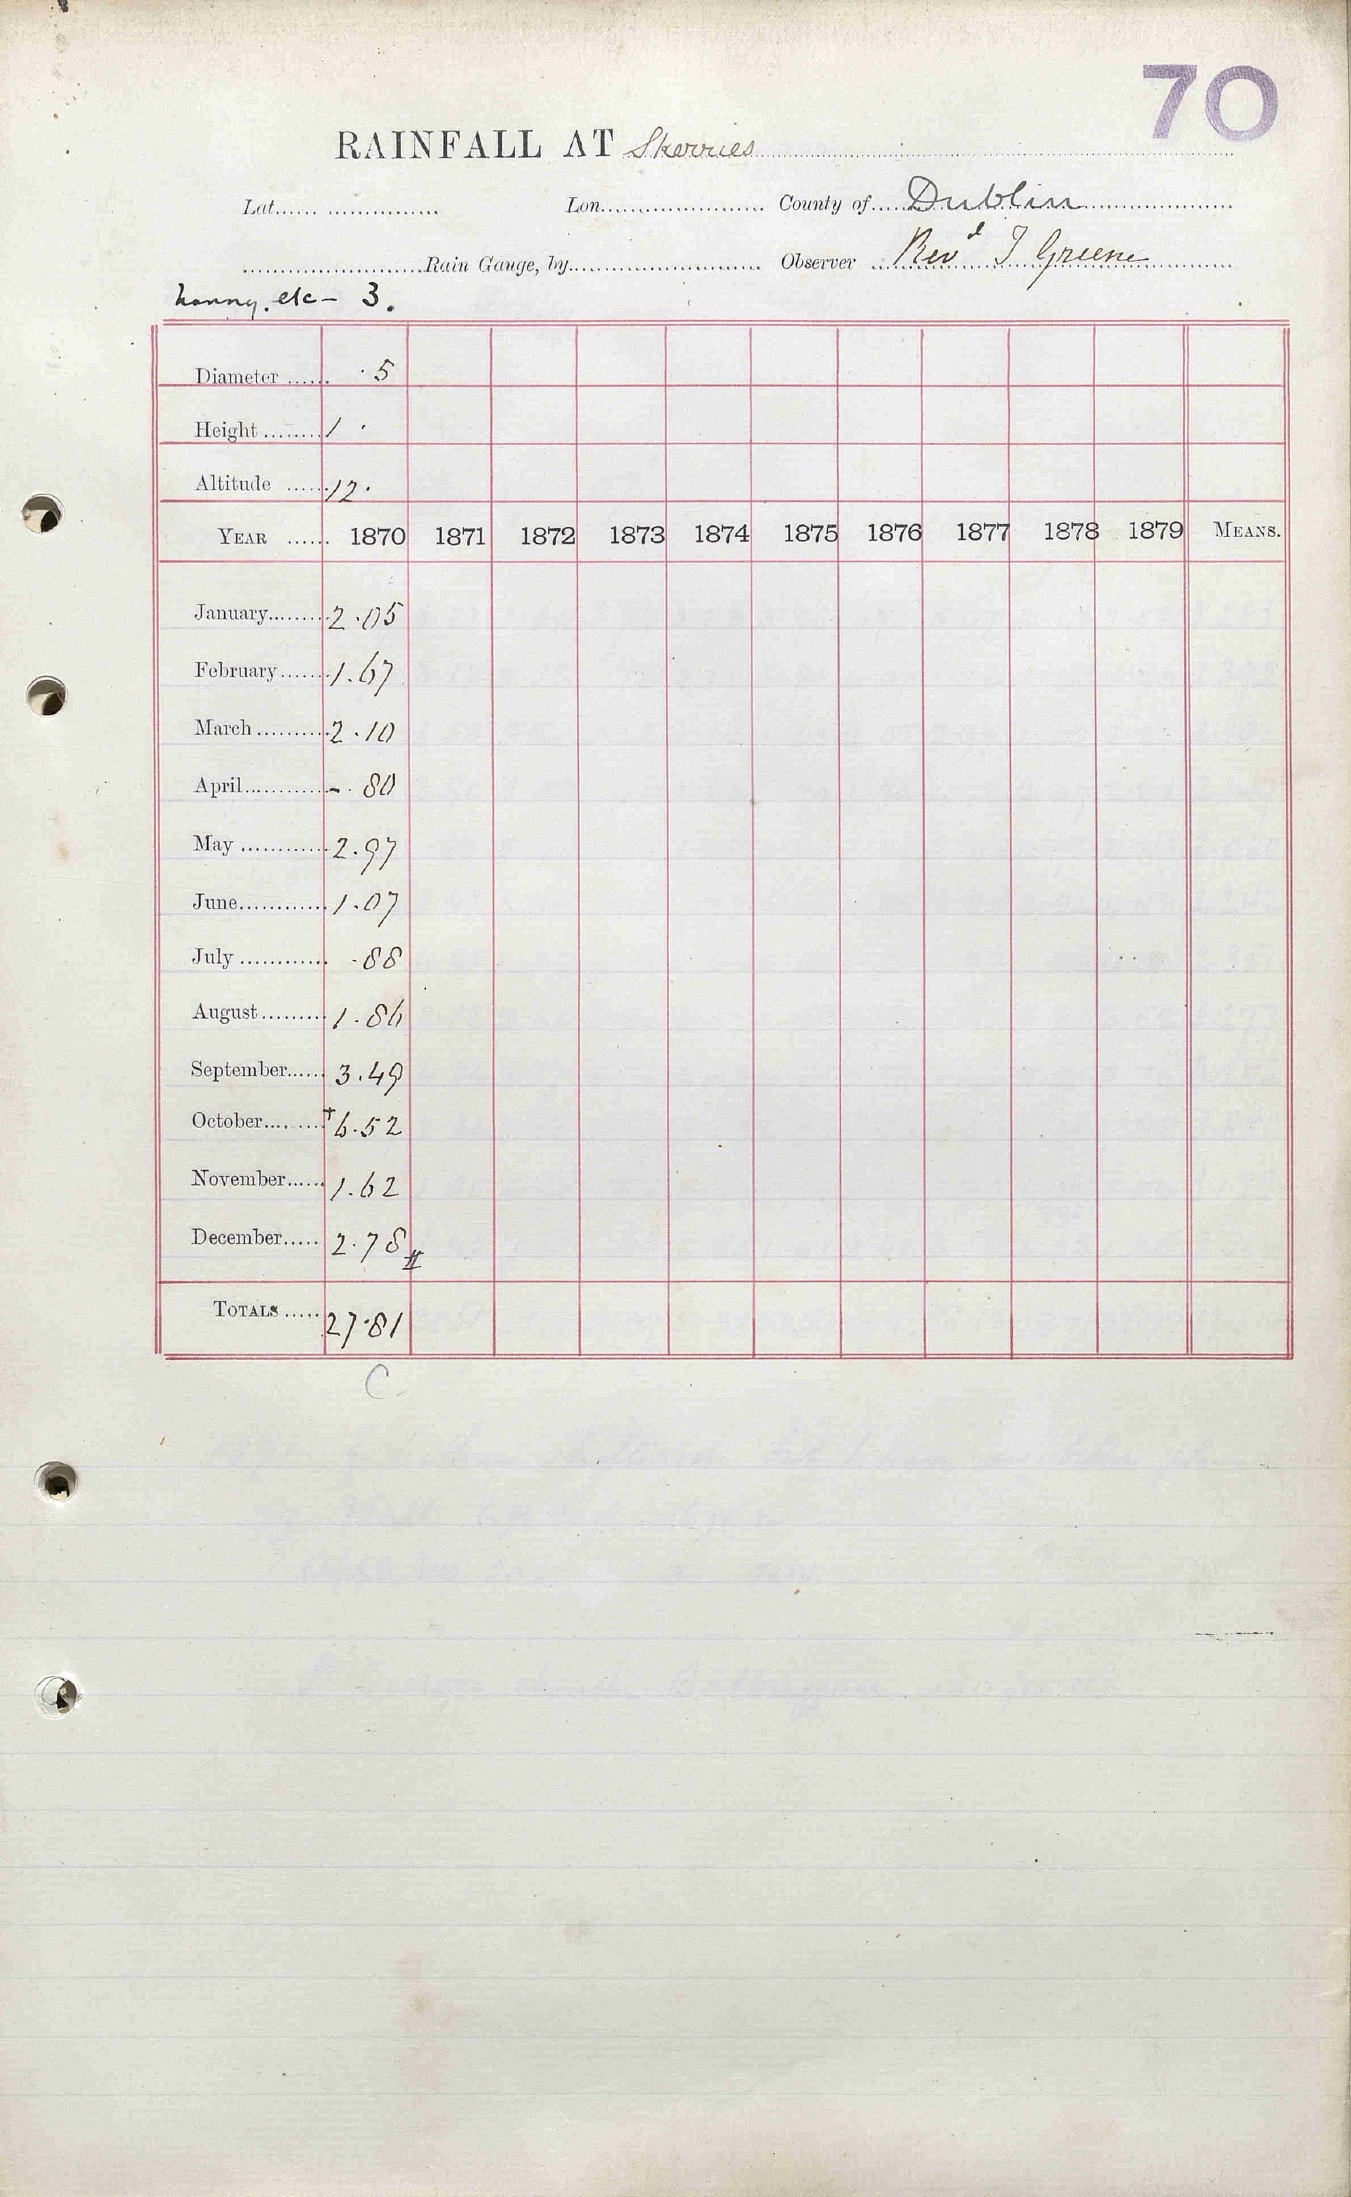 70
RAINFALL AT Skerries
Lat. Lon. County of Dublin
Rain Gauge, by Observer Revd J Greene
Nanny. etc - 3.
Diameter ...... · 5
Height ........ 1 ·
Altitude ...... 12 ·
YEAR ...... 1870 1871 1872 1873 1874 1875 1876 1877 1878 1879 MEANS.
January........ 2.05
February....... 1.67
March .......... 2.10
April............ - . 80
May ............ 2.97
June............ 1.07
July ............ .88
August......... 1.86
September...... 3.49
October......... +6.52
November...... 1.62
December..... 2.78 #
TOTALS ..... 27.81
C